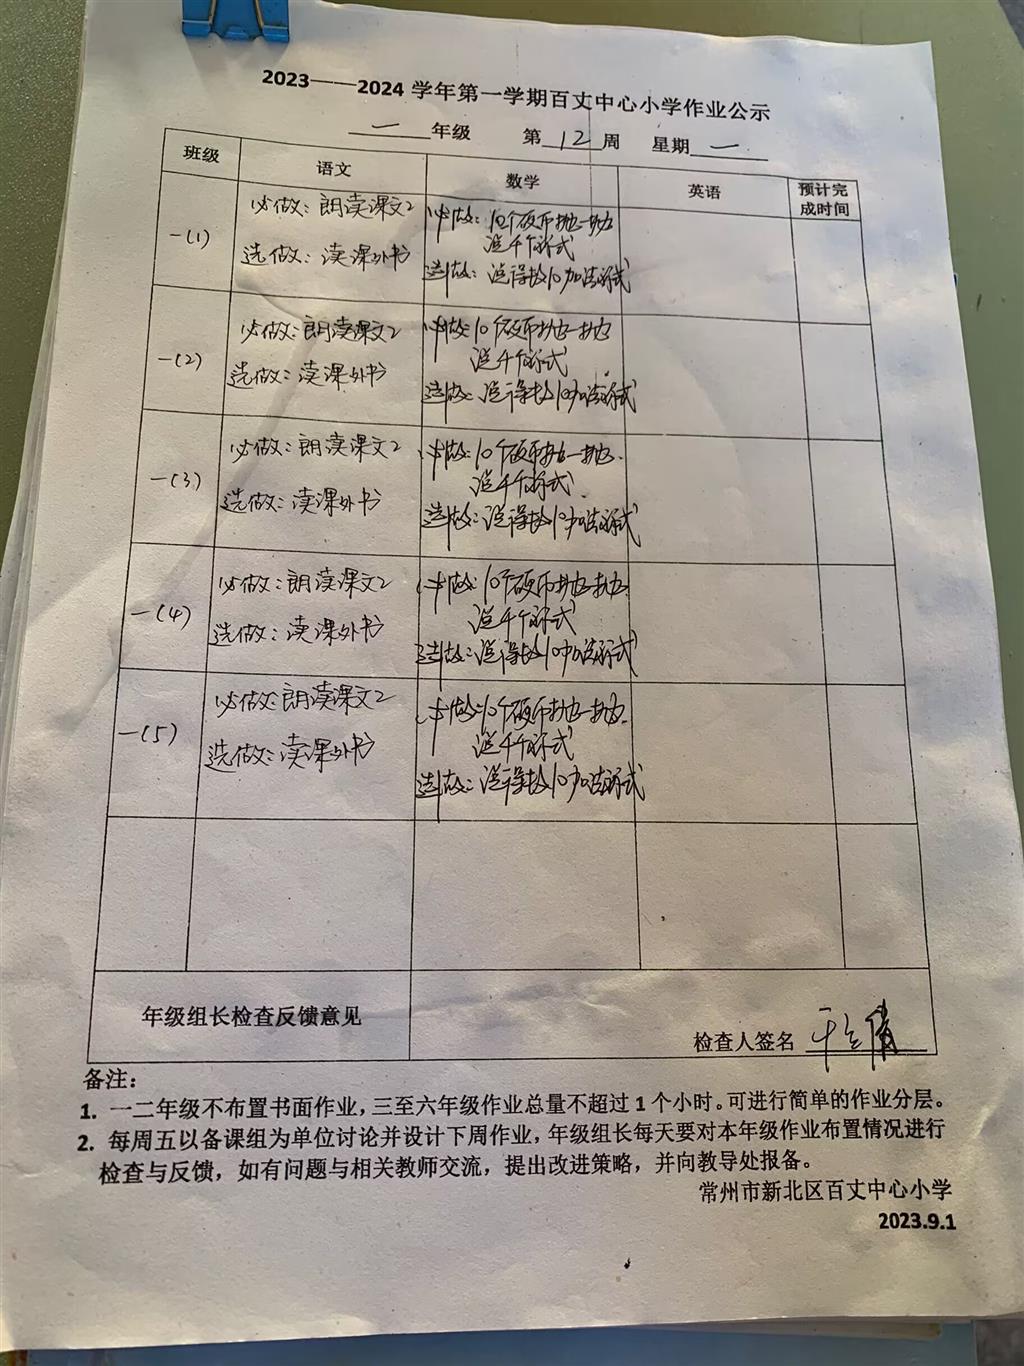 2023——2024 学年第一学期百丈中心小学作业公示
一 年级 第 12 周 星期 一
班级 语文 数学 英语 预计完
成时间
一(1)
必做：朗读课文2
选做：读课外书
必做：10个硬币抛一抛
说4个算式
选做：说得数10加法算式
一(2)
必做：朗读课文2
选做：读课外书
必做：10个硬币抛一抛
说4个算式
选做：说得数10加法算式
一(3)
必做：朗读课文2
选做：读课外书
必做：10个硬币抛一抛.
说4个算式.
选做：说得数10加法算式
一(4)
必做：朗读课文2
选做：读课外书
必做：10个硬币抛一抛.
说4个算式
选做：说得数10加法算式
一(5)
必做：朗读课文2
选做：读课外书
必做：10个硬币抛一抛.
说4个算式
选做：说得数10加法算式
年级组长检查反馈意见
检查人签名
备注：
1. 一二年级不布置书面作业，三至六年级作业总量不超过 1 个小时。可进行简单的作业分层。
2. 每周五以备课组为单位讨论并设计下周作业，年级组长每天要对本年级作业布置情况进行
检查与反馈，如有问题与相关教师交流，提出改进策略，并向教导处报备。
常州市新北区百丈中心小学
2023.9.1